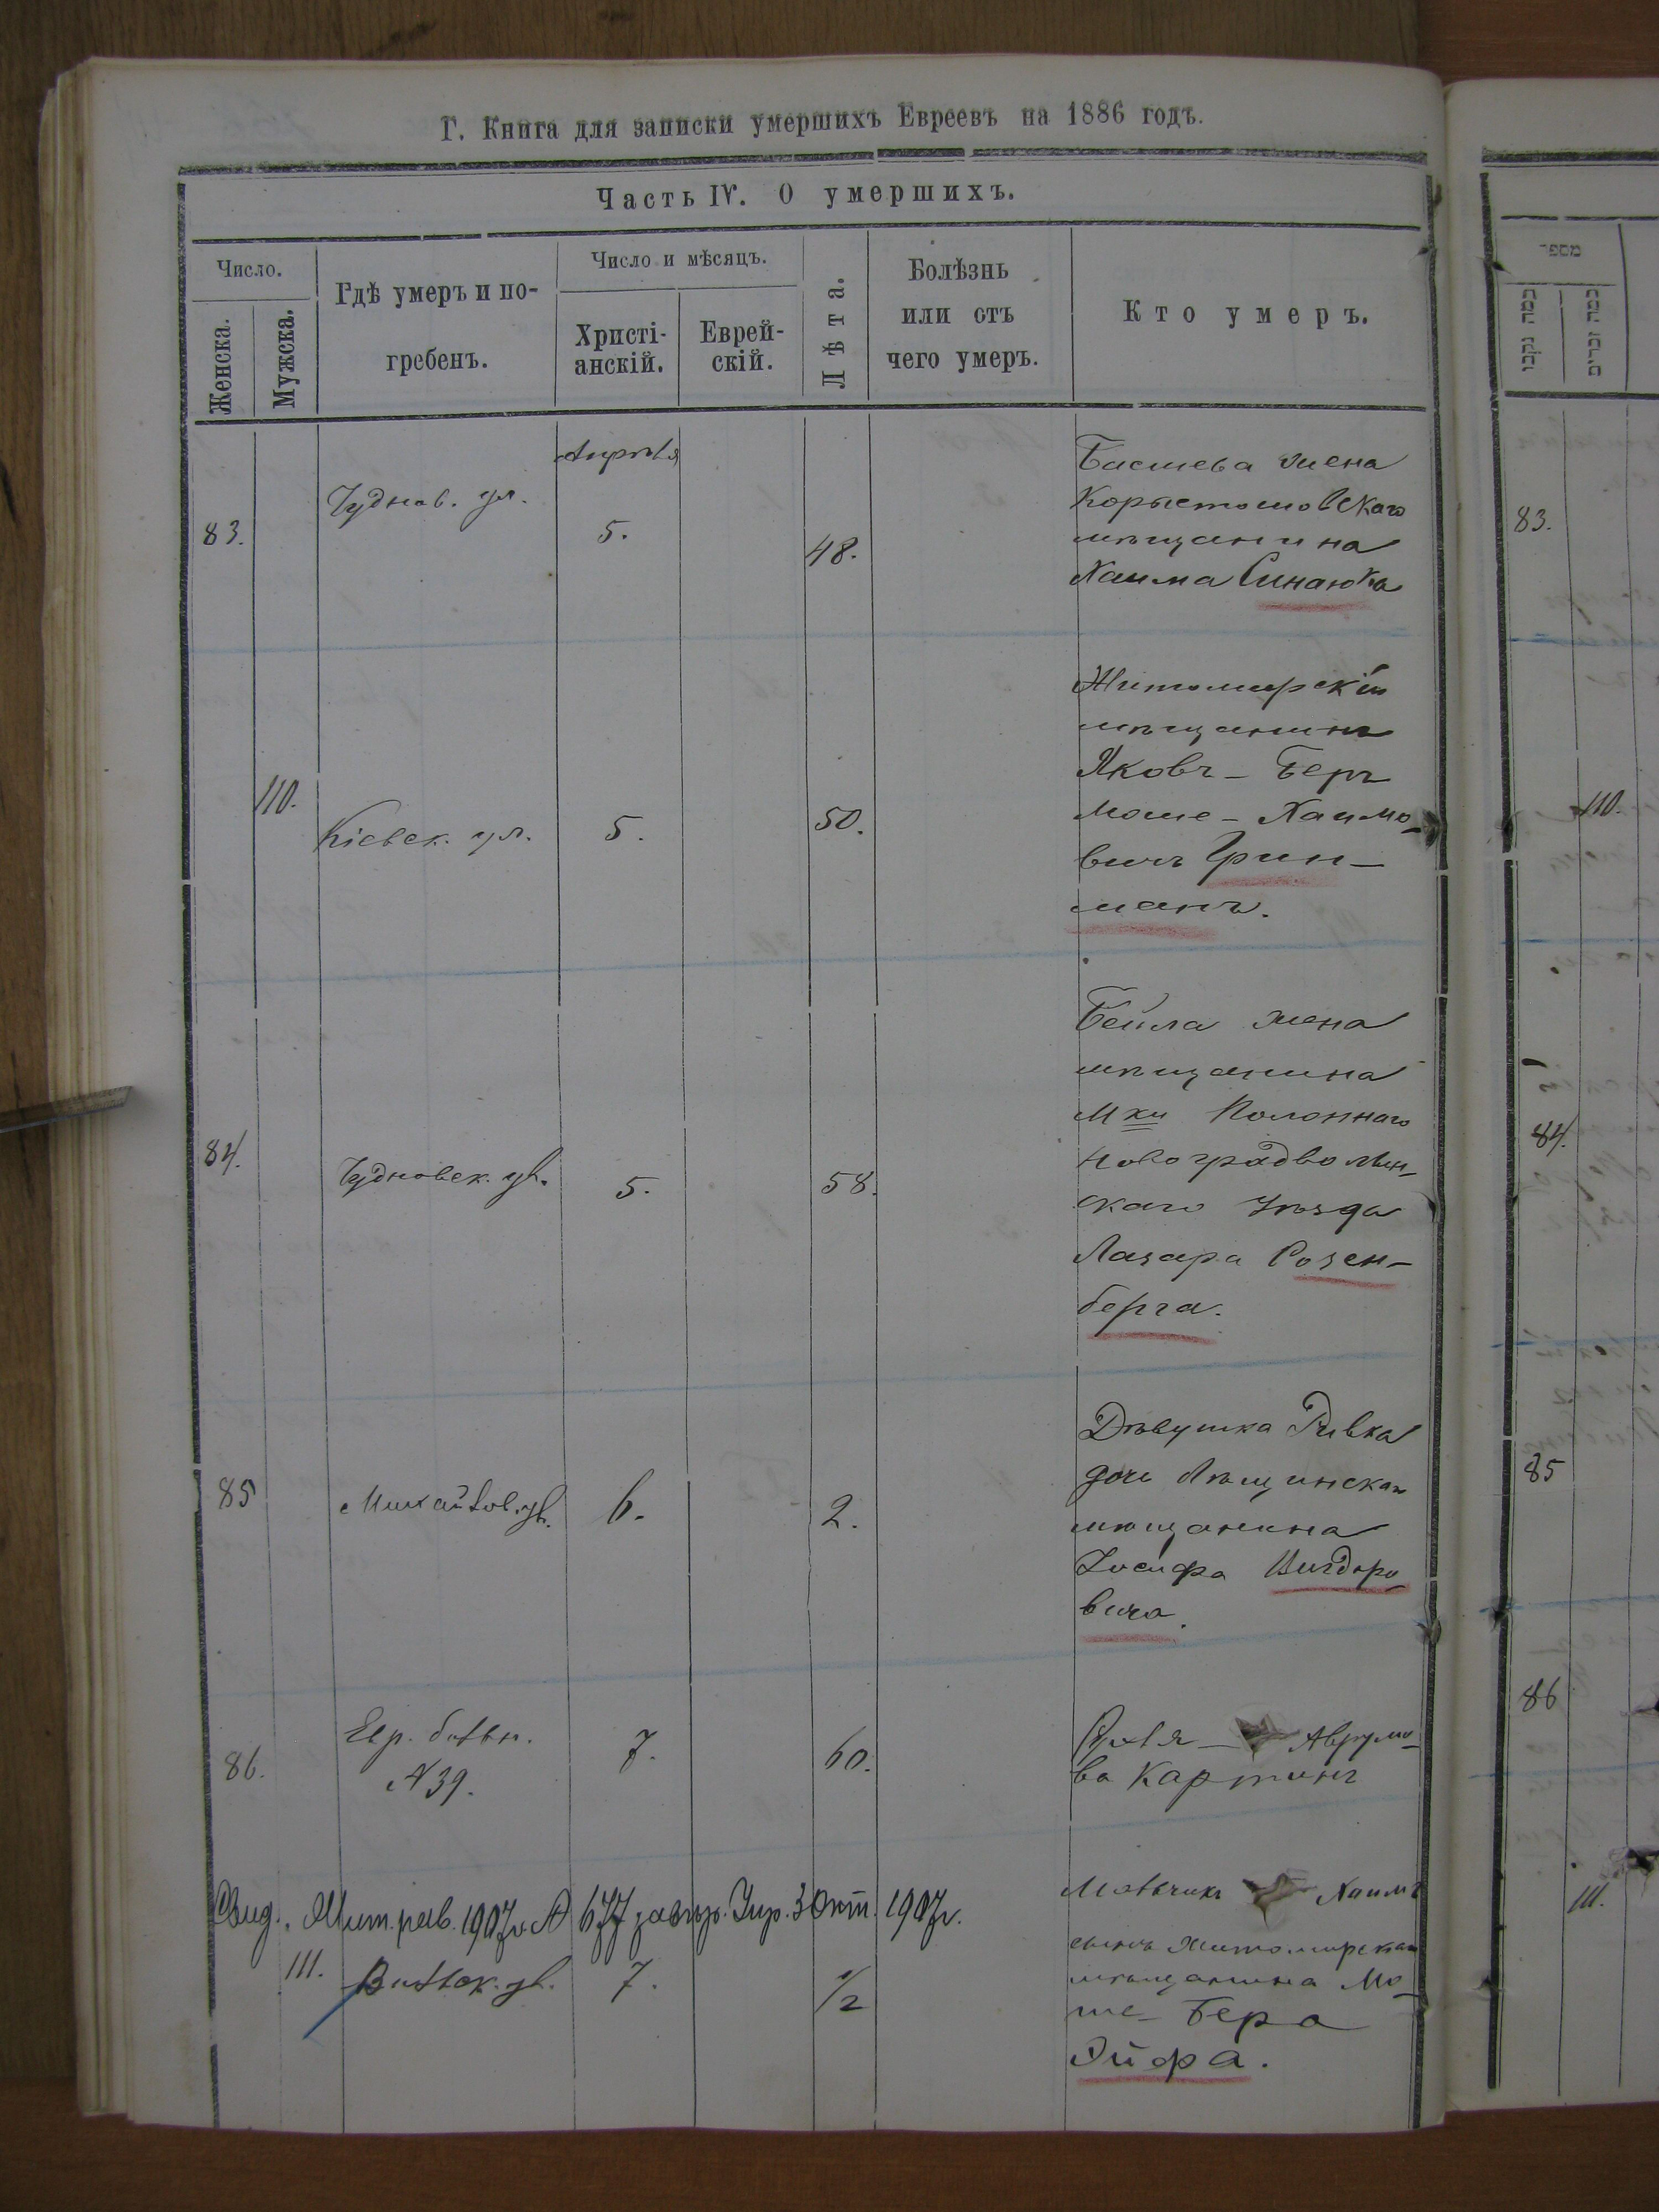 Г. Книга для записки умершихъ Евреевъ на 1886 годъ.
Часть IV. О умершихъ.
Число.
Женска.
Мужска.
Гдѣ умеръ и по-
гребенъ.
Число и мѣсяцъ.
Христі-
анскій.
Еврей-
скій.
Лѣта.
Болѣзнь
или отъ
чего умеръ.
Кто умеръ.
83.
Чуднов. ул.
Апрѣля
5.
48.
Басшева жена
Коростошовскаго
мѣщанина
Хаима Синаюка
110.
Кіевск. ул.
5.
50.
Житомирскій
мѣщанинъ
Яковъ - Беръ
Моше - Хаимо-
вичъ Грин-
манъ.
84.
Чудновск. ул.
5.
58.
Бейла жена
мѣщанина
Мки Полоннаго
Новоградволын-
скаго уѣзда
Лазара Розен-
берга.
85
Михайлов. ул.
6.
2.
Дѣвушка Ривка
дочь
мѣщанина
Іосифа Вигдоро-
вича.
86.
Евр. больн.
№ 39.
7.
60.
Рухля - Аврумо-
ва
Свид. Жит. рав. 1907 г. № 677 3 Окт. 1907 г.
111.
Вильск. ул.
7.
1/2
Мальчикъ Хаимъ
сынъ Житомирскаго
мѣщанина Мо-
ше - Бера
Эйфа.
83.
110.
84.
85
86
111.